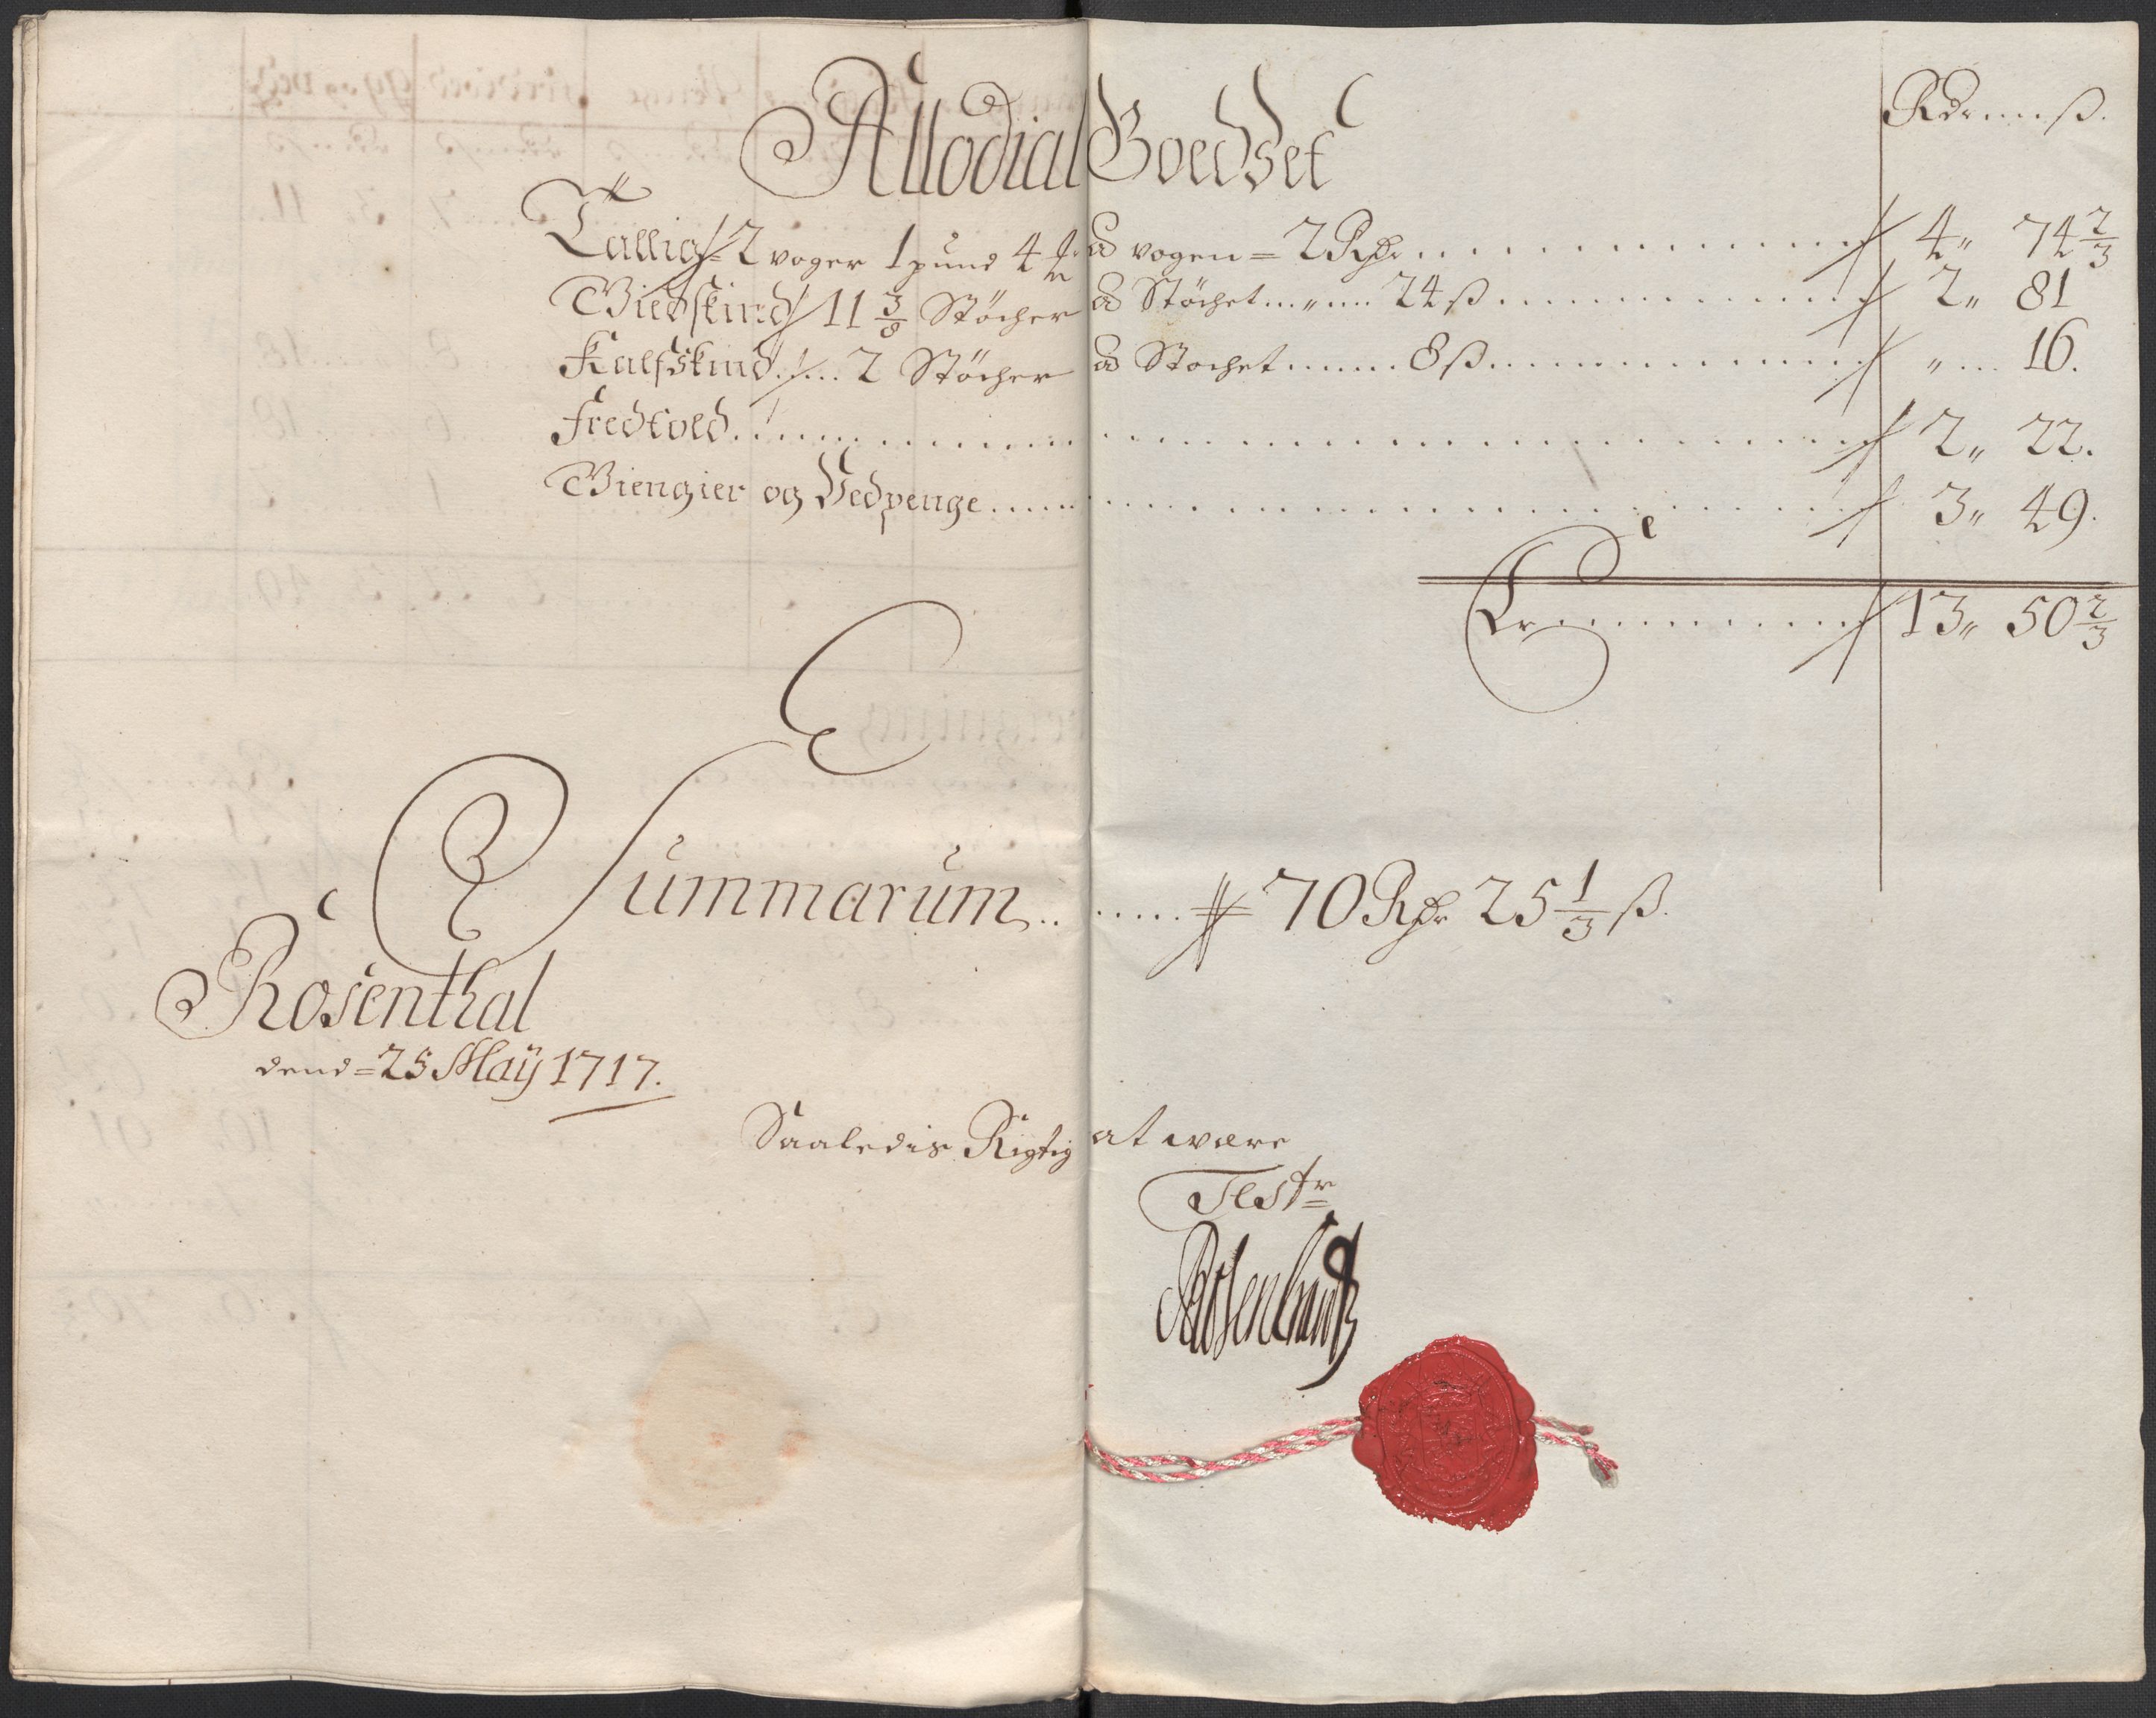 Allodial Goedset
Rdr ß.
Tallig 2 voger 1 pund 4 a vogen = 2 Rdr 4„ 74 2/3
Giedskind 11 3/8 Stöcher a Stöchet 24 ß 2„ 81
Kalfskind 2 Stöcher a Stochet 8 ß „ 16.
Fredtold 2„ 22.
Giengier og Vedpenge 3„ 49.
Er 13„ 50 2/3
Summarum 70 Rdr 25 1/3 ß.
Rosenthal
dend = 25 Maÿ 1717.
Saaledis Rigtig at være
Test